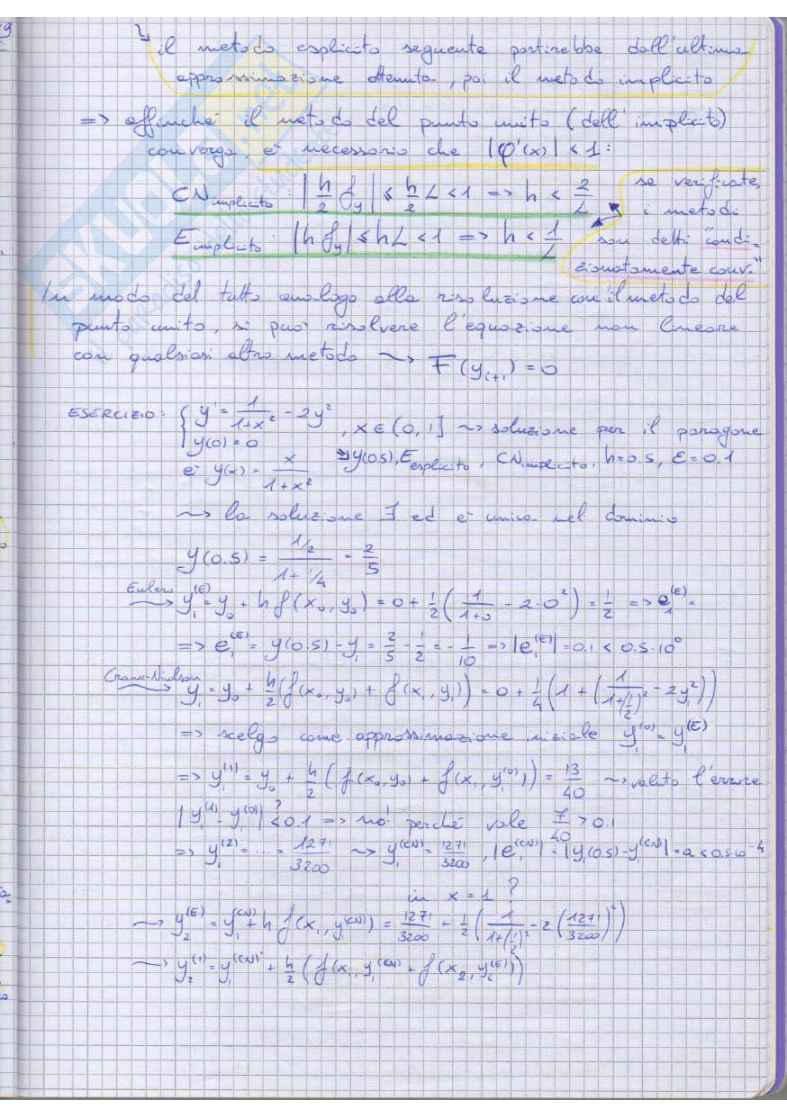 ↳ il metodo esplicito seguente partirebbe dall'ultima
approssimazione ottenuta, poi il metodo implicito
=> affinché il metodo del punto unito (dell'implicito)
converga, è necessario che |φ'(x)| < 1:
CN implicito: |h/2 f_y| ≤ h/2 L < 1 => h < 2/L
E implicito: |h f_y| ≤ hL < 1 => h < 1/L
se verificate,
i metodi
son detti "condi-
zionatamente conv."
In modo del tutto analogo alla risoluzione con il metodo del
punto unito, si può risolvere l'equazione non lineare
con qualsiasi altro metodo ~> F(y_{i+1}) = 0
ESERCIZIO: { y' = 1/(1+x²) - 2y² , x ∈ (0,1] ~> soluzione per il paragone
y(0) = 0
è y(x) = x/(1+x²) => y(0.5), E esplicito, CN implicito, h=0.5, ε=0.1
~> la soluzione ∃ ed è unica nel dominio
y(0.5) = (1/2)/(1+1/4) = 2/5
Eulero ~> y₁^(E) = y₀ + h f(x₀, y₀) = 0 + 1/2 (1/(1+0) - 2·0²) = 1/2 => e₁^(E) =
=> e₁^(E) = y(0.5) - y₁ = 2/5 - 1/2 = - 1/10 => |e₁^(E)| = 0.1 < 0.5·10⁰
Crank-Nicolson ~> y₁ = y₀ + h/2 (f(x₀, y₀) + f(x₁, y₁)) = 0 + 1/4 (1 + (1/(1+(1/2)²) - 2y₁²))
=> scelgo come approssimazione iniziale y₁^(0) = y₁^(E)
=> y₁^(1) = y₀ + h/2 (f(x₀, y₀) + f(x₁, y₁^(0))) = 13/40 ~> valuto l'errore
|y₁^(1) - y₁^(0)| <? 0.1 => no! perché vale 7/40 > 0.1
=> y₁^(2) = .... = 1271/3200 ~> y₁^(CN) = 1271/3200, |e₁^(CN)| = |y(0.5) - y^(CN)| =
in x = 1 ?
~> y₂^(E) = y₁^(CN) + h f(x₁, y₁^(CN)) = 1271/3200 - 1/2 (1/(1+(1/2)²) - 2 (1271/3200)²)
~> y₂^(1) = y₁^(CN) + h/2 (f(x₁, y₁^(CN) + f(x₂, y₂^(E)))